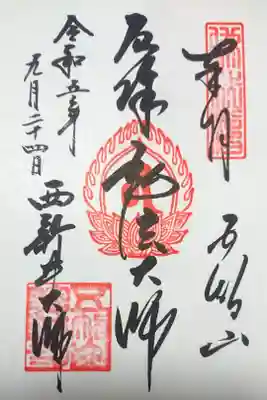 奉拝 五智山
厄除弘法大師
令和五年
九月二十四日
西新井大師